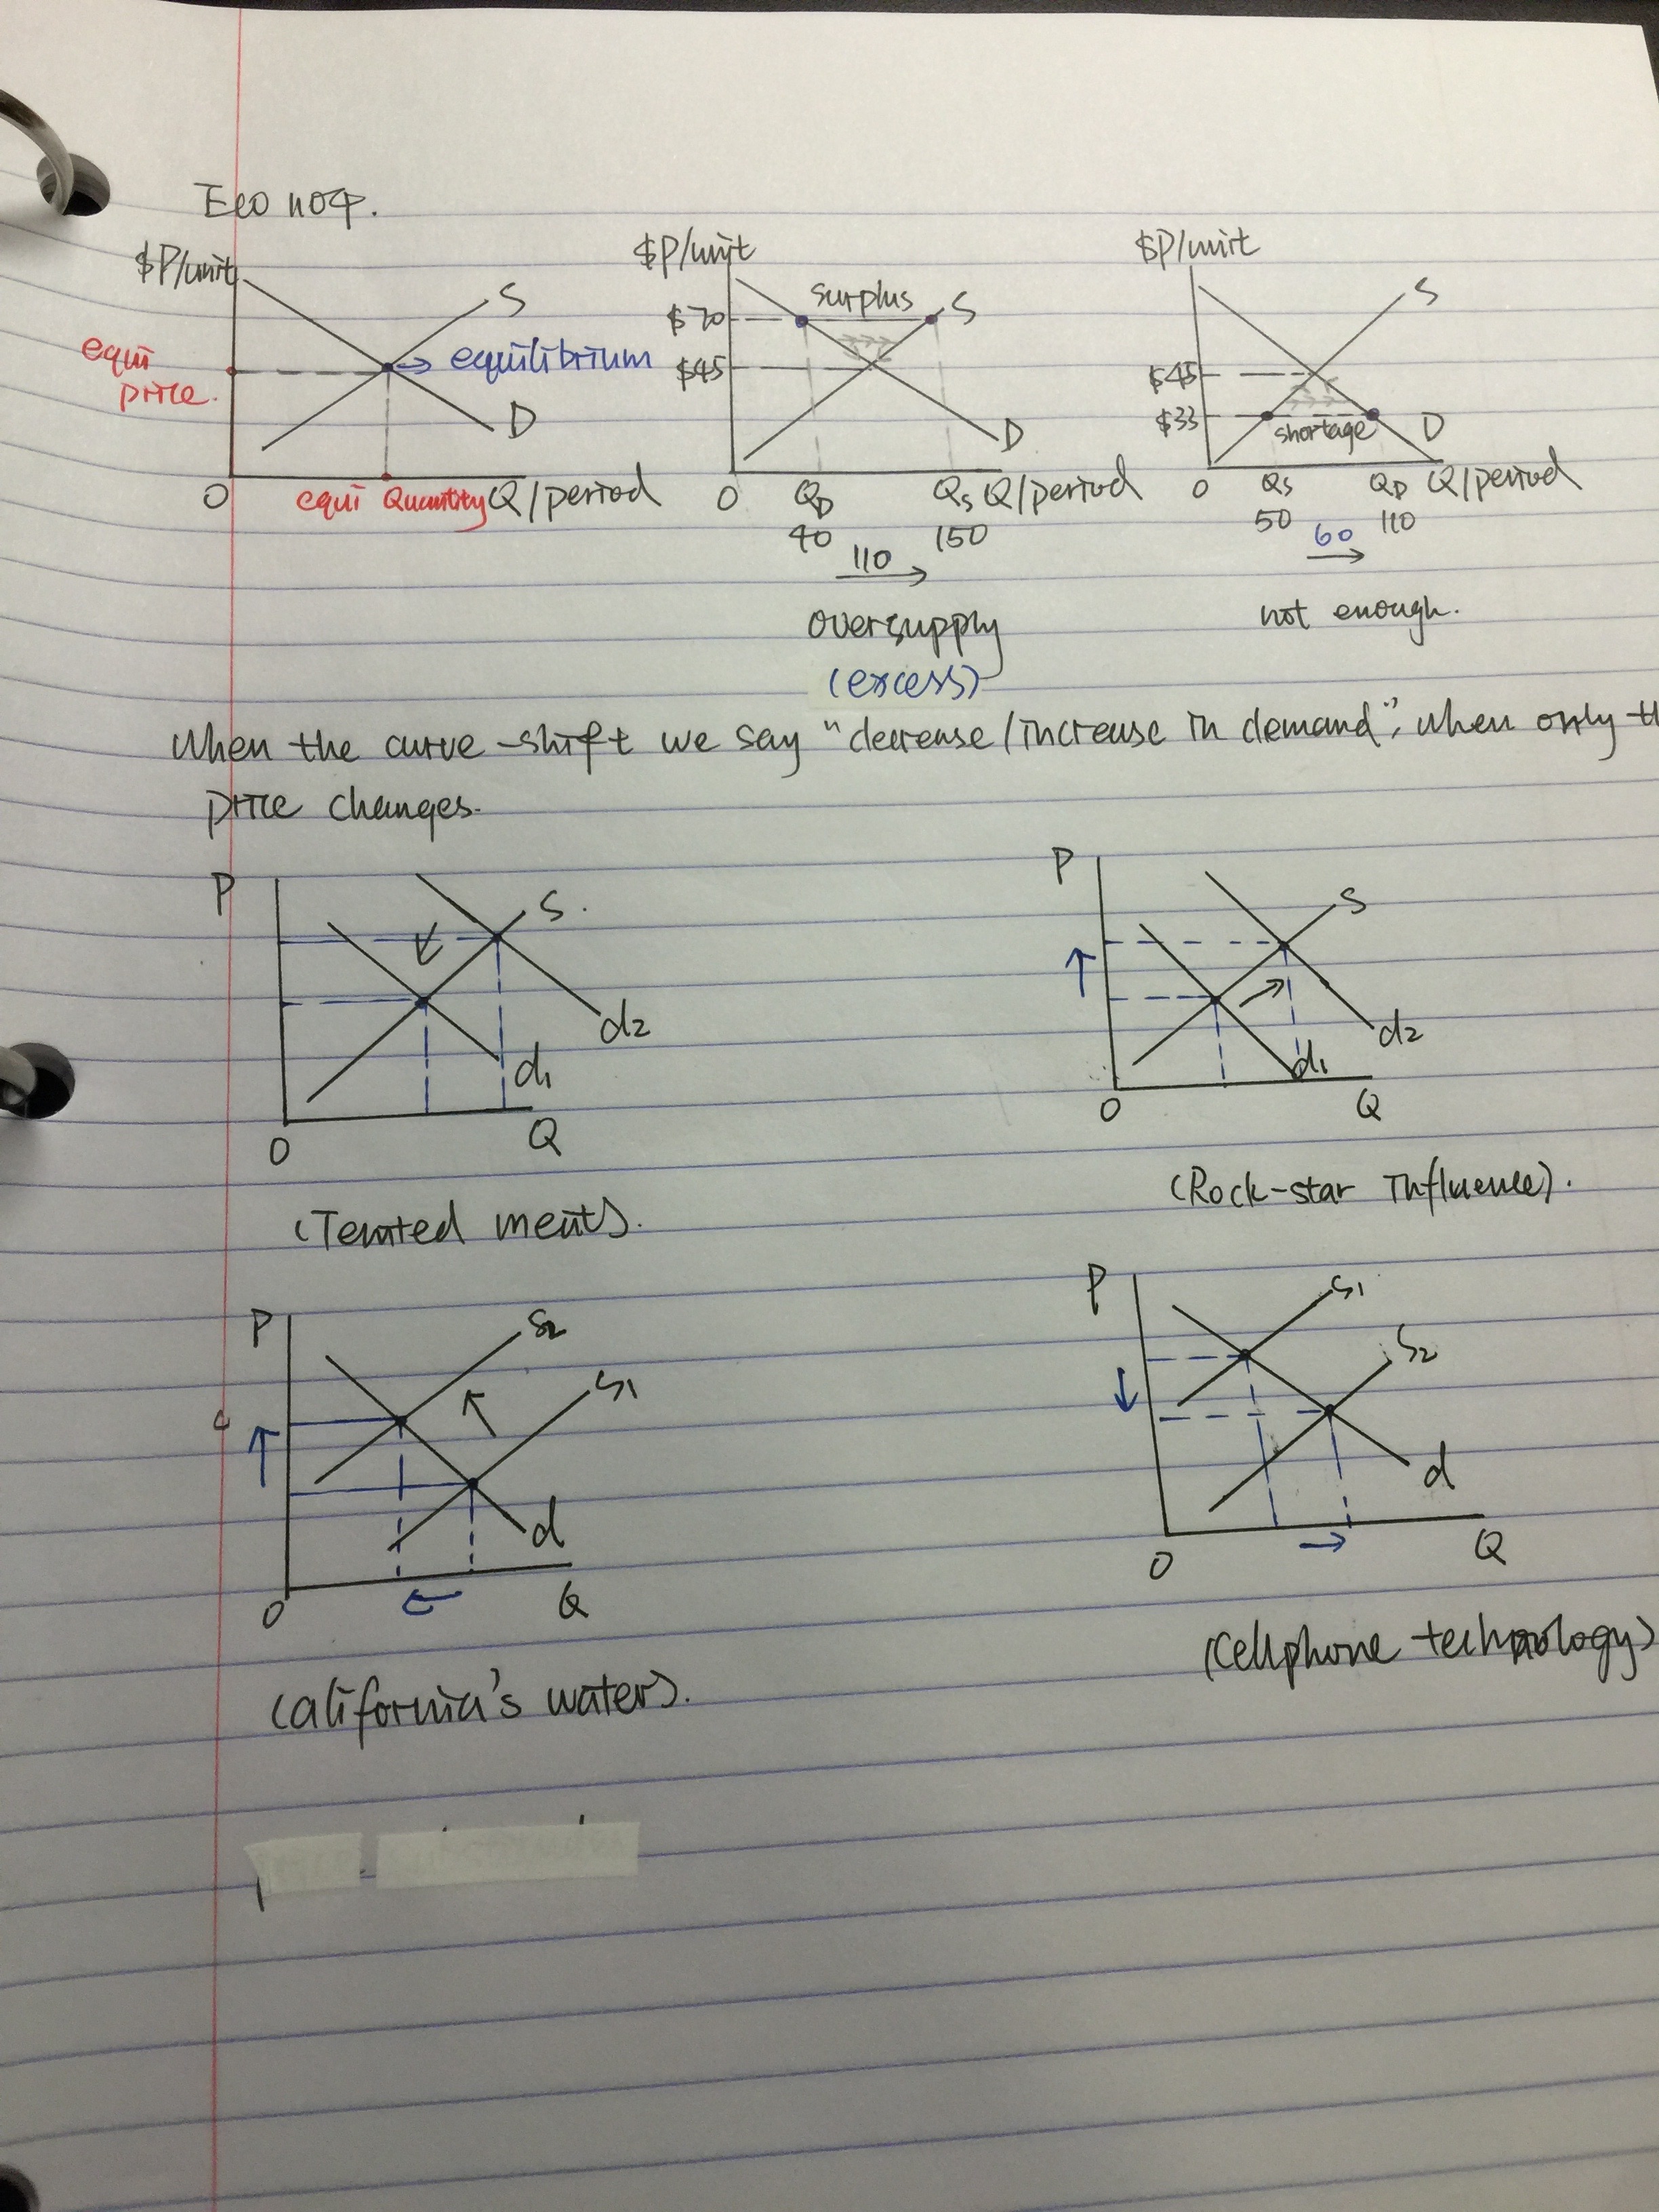 Eco 1104.
$P/unit $P/unit $P/unit
S surplus S S
$70
equi price. equilibrium $45 $45
$33 shortage
D D D
0 equi Quantity Q/period 0 QD QS Q/period 0 QS QD Q/period
40 150 50 110
110 60
oversupply not enough.
(excess)
When the curve shift we say "decrease/increase in demand", when only th
price changes.
P S. P S
d2 d2
d1 d1
0 Q 0 Q
(Tented meats). (Rock-star Influence).
P S2 P S1
S1 S2
d d
0 Q 0 Q
(California's waters). (Cellphone technology)